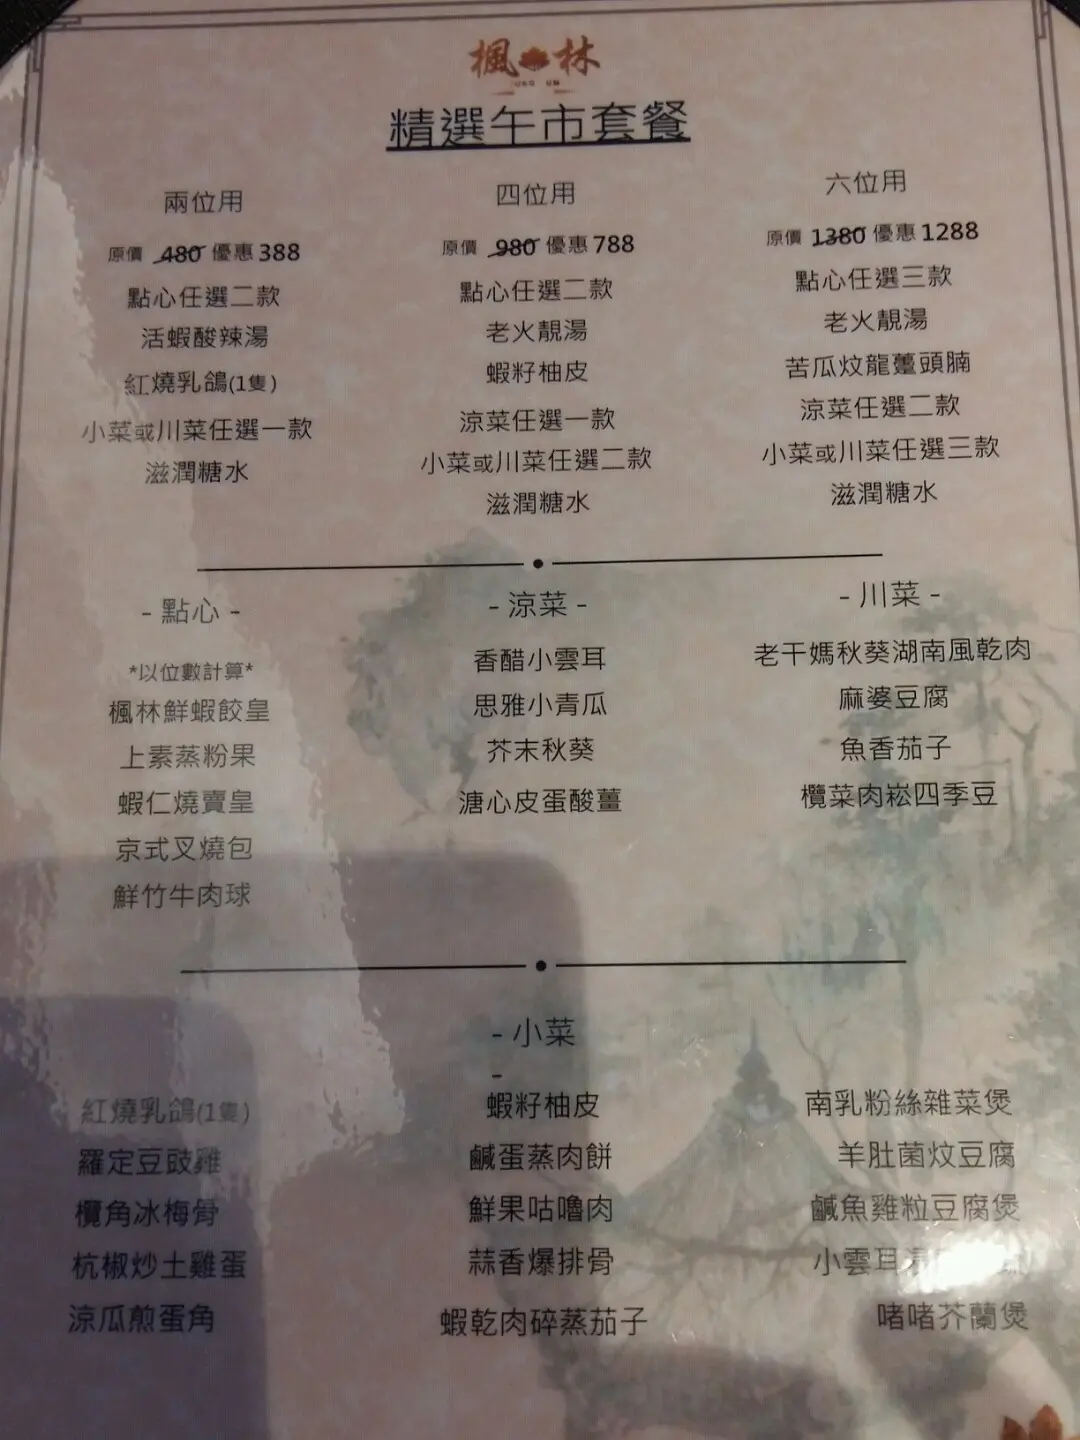 楓林
精選午市套餐
兩位用
原價 480 優惠 388
點心任選二款
活蝦酸辣湯
紅燒乳鴿(1隻)
小菜或川菜任選一款
滋潤糖水
四位用
原價 980 優惠 788
點心任選二款
老火靚湯
蝦籽柚皮
涼菜任選一款
小菜或川菜任選二款
滋潤糖水
六位用
原價 1380 優惠 1288
點心任選三款
老火靚湯
苦瓜炆龍躉頭腩
涼菜任選二款
小菜或川菜任選三款
滋潤糖水
- 點心 -
*以位數計算*
楓林鮮蝦餃皇
上素蒸粉果
蝦仁燒賣皇
京式叉燒包
鮮竹牛肉球
- 涼菜 -
香醋小雲耳
思雅小青瓜
芥末秋葵
溏心皮蛋酸薑
- 川菜 -
老干媽秋葵湖南風乾肉
麻婆豆腐
魚香茄子
欖菜肉崧四季豆
- 小菜
-
紅燒乳鴿(1隻)
羅定豆豉雞
欖角冰梅骨
杭椒炒土雞蛋
涼瓜煎蛋角
蝦籽柚皮
鹹蛋蒸肉餅
鮮果咕嚕肉
蒜香爆排骨
蝦乾肉碎蒸茄子
南乳粉絲雜菜煲
羊肚菌炆豆腐
鹹魚雞粒豆腐煲
小雲耳
啫啫芥蘭煲